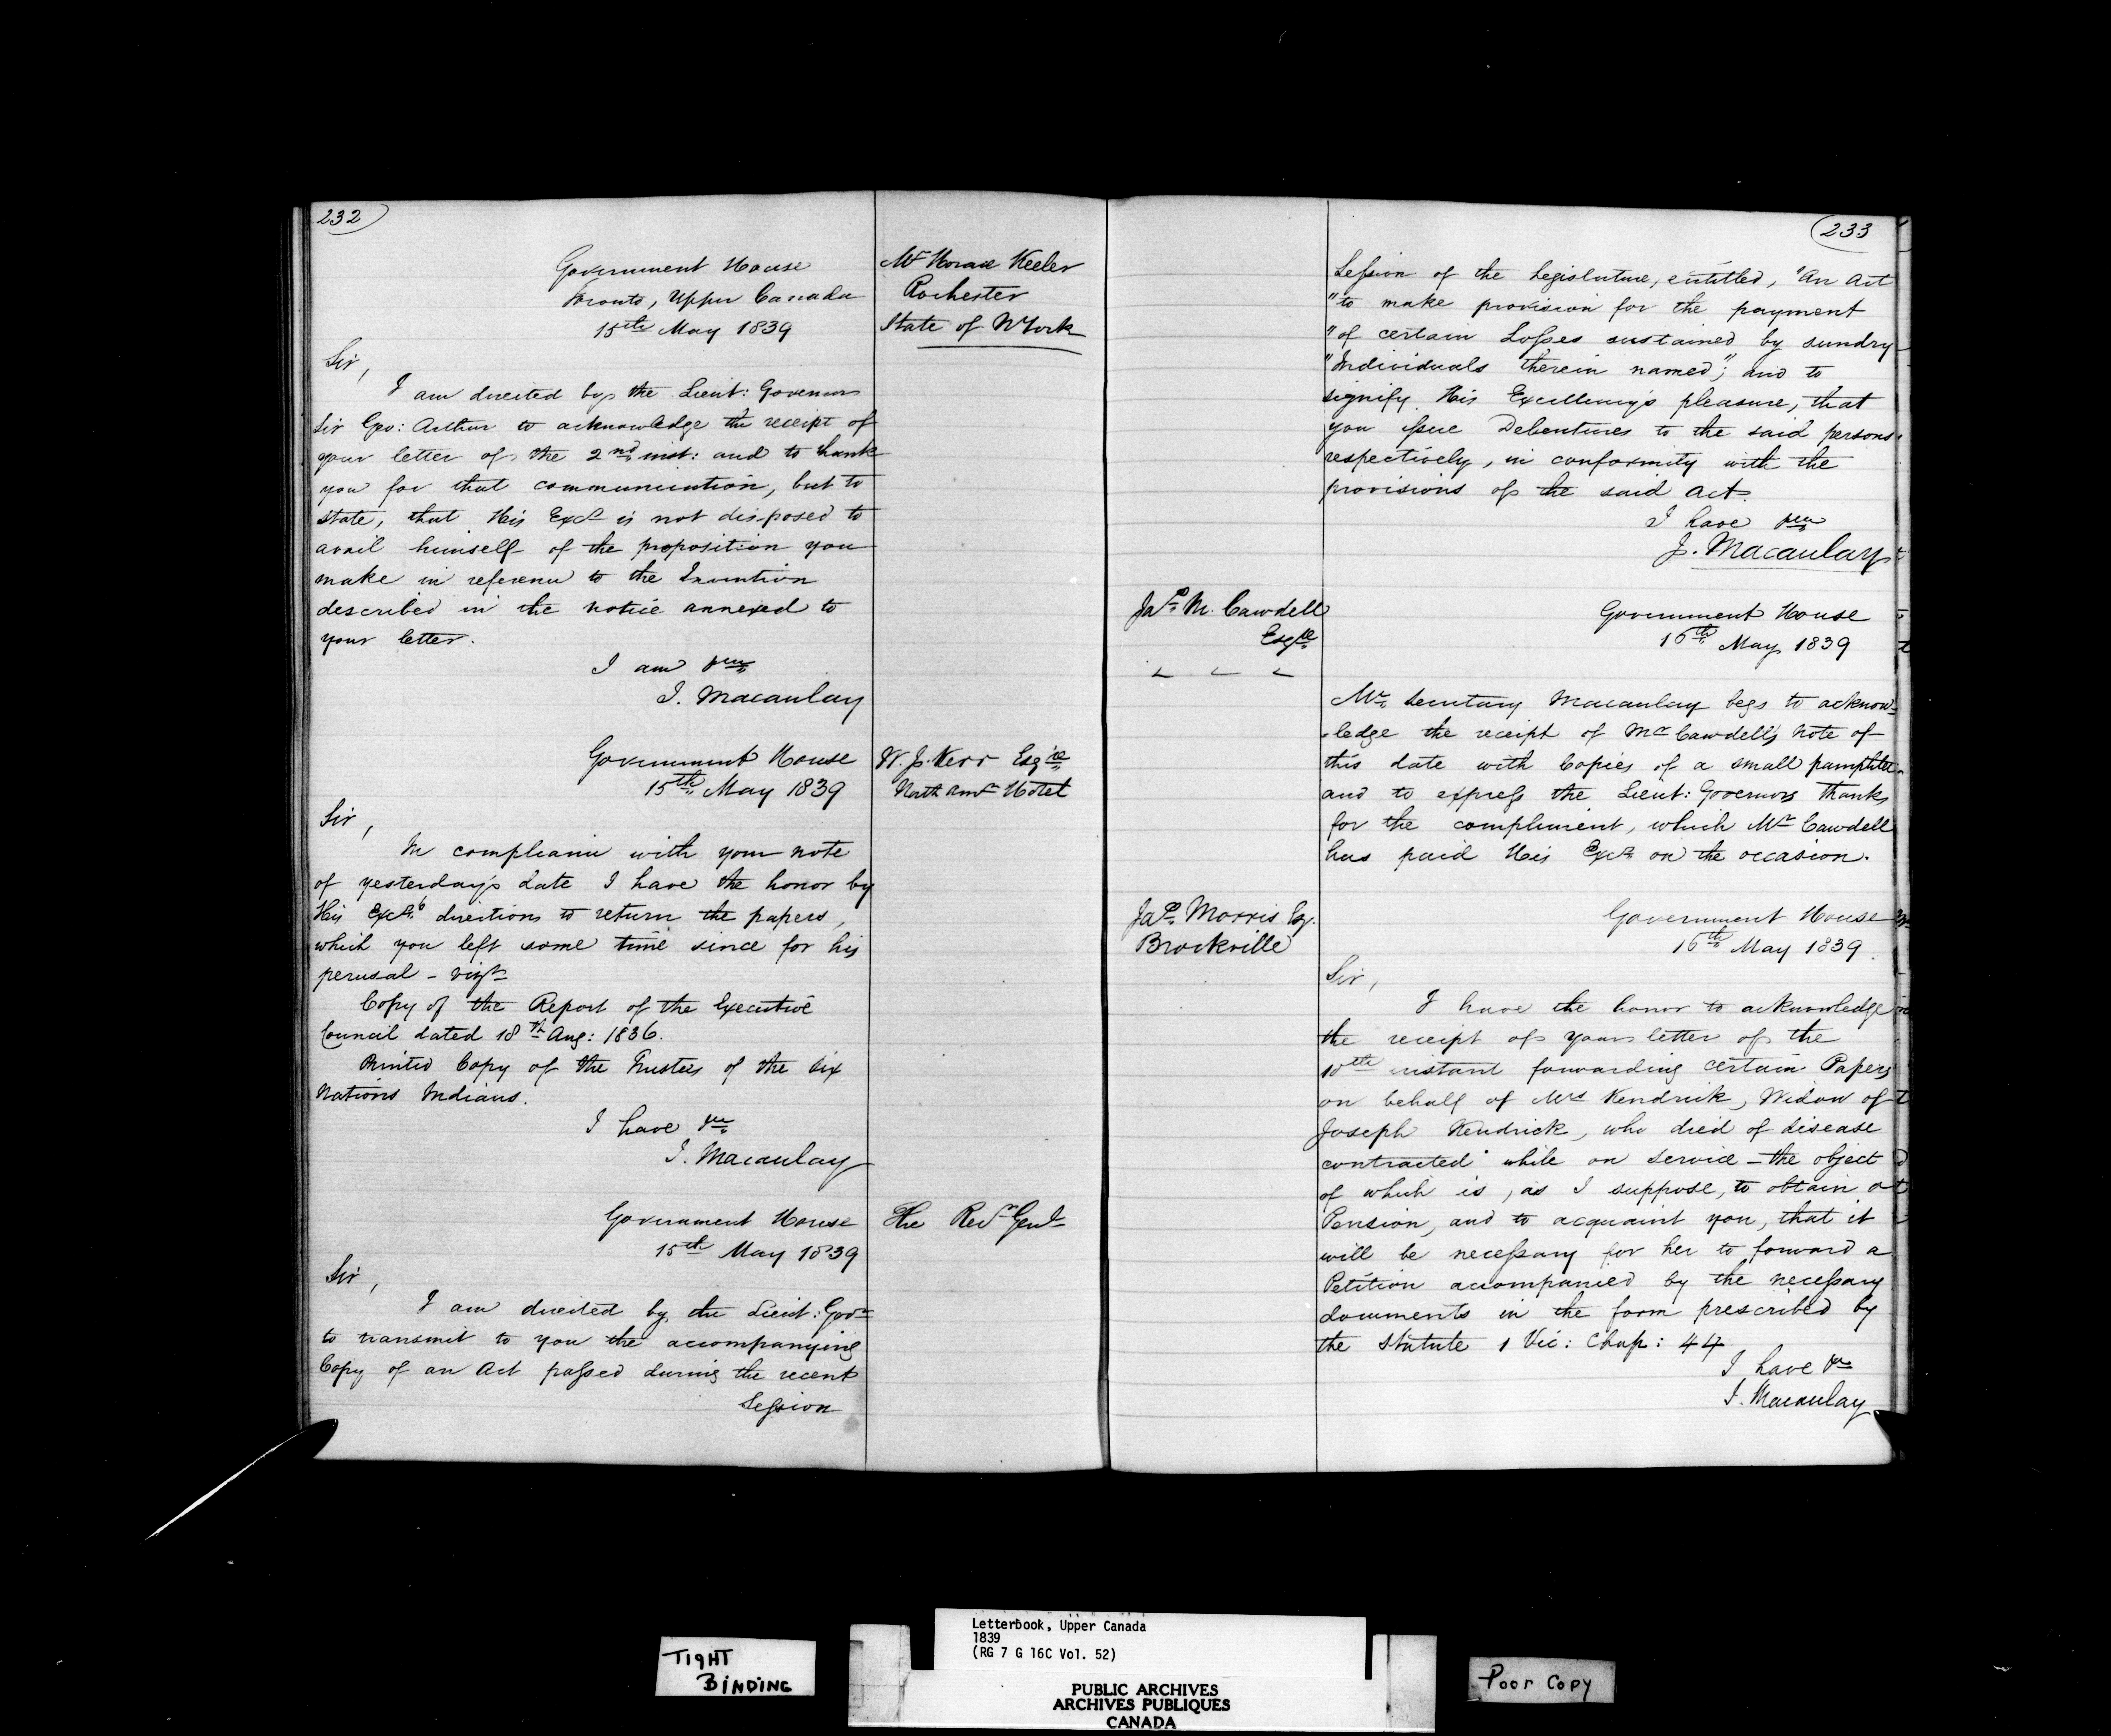 232
Government House
Toronto, Upper Canada
15th May 1839
Mr Horace Keeler
Rochester
State of N York
Sir,
I am directed by the Lieut: Governor
Sir Geo: Arthur to acknowledge the receipt of
your letter of the 2nd inst: and to thank
you for that communication, but to
state, that His Excy is not disposed to
avail himself of the proposition you
make in reference to the Invention
described in the notice annexed to
your letter.
I am &c
J. Macaulay
Government House
15th May 1839
W. J. Kerr Esqre
North Amn Hotel
Sir,
In compliance with your note
of yesterday's date I have the honor by
His Excy's directions to return the papers,
which you left some time since for his
perusal - vizt
Copy of the Report of the Executive
Council dated 18th Aug: 1836.
Printed Copy of the Trustees of the Six
Nations Indians.
I have &c
J. Macaulay
Government House
15th May 1839
The Recr Genl
Sir,
I am directed by the Lieut: Govr
to transmit to you the accompanying
Copy of an Act passed during the recent
Session
233
Session of the Legislature, entitled, "An Act
"to make provision for the payment
"of certain Losses sustained by sundry
"Individuals therein named"; and to
signify His Excellency's pleasure, that
you issue Debentures to the said persons
respectively, in conformity with the
provisions of the said Act
I have &c
J. Macaulay
Jas M. Cawdell
Esqre
Government House
16th May 1839
Mr Secretary Macaulay begs to acknow-
-ledge the receipt of Mr Cawdell's note of
this date with Copies of a small pamphlet
and to express the Lieut: Governors thanks
for the compliment, which Mr Cawdell
has paid His Excy on the occasion.
Jas Morris Esq.
Brockville
Government House
16th May 1839.
Sir,
I have the honor to acknowledge
the receipt of your letter of the
10th instant forwarding certain Papers
on behalf of Mrs Kendrick, Widow of
Joseph Kendrick, who died of disease
contracted while on service - the object
of which is, as I suppose, to obtain a
Pension, and to acquaint you, that it
will be necessary for her to forward a
Petition accompanied by the necessary
documents in the form prescribed by
the Statute 1 Vic: Chap: 44
I have &c
J. Macaulay
TIGHT
BINDING
Letterbook, Upper Canada
1839
(RG 7 G 16C Vol. 52)
PUBLIC ARCHIVES
ARCHIVES PUBLIQUES
CANADA
Poor Copy